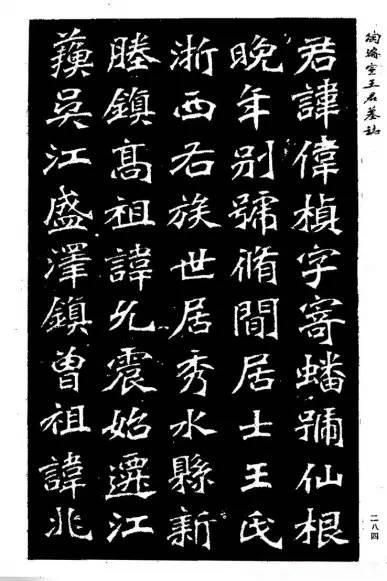 陶濬宣王君墓誌
君諱偉楨字寄蟠號仙根
晚年别號脩閒居士王氏
浙西右族世居秀水縣新
塍鎮高祖諱允震始遷江
蘇吳江盛澤鎮曾祖諱兆
二八四